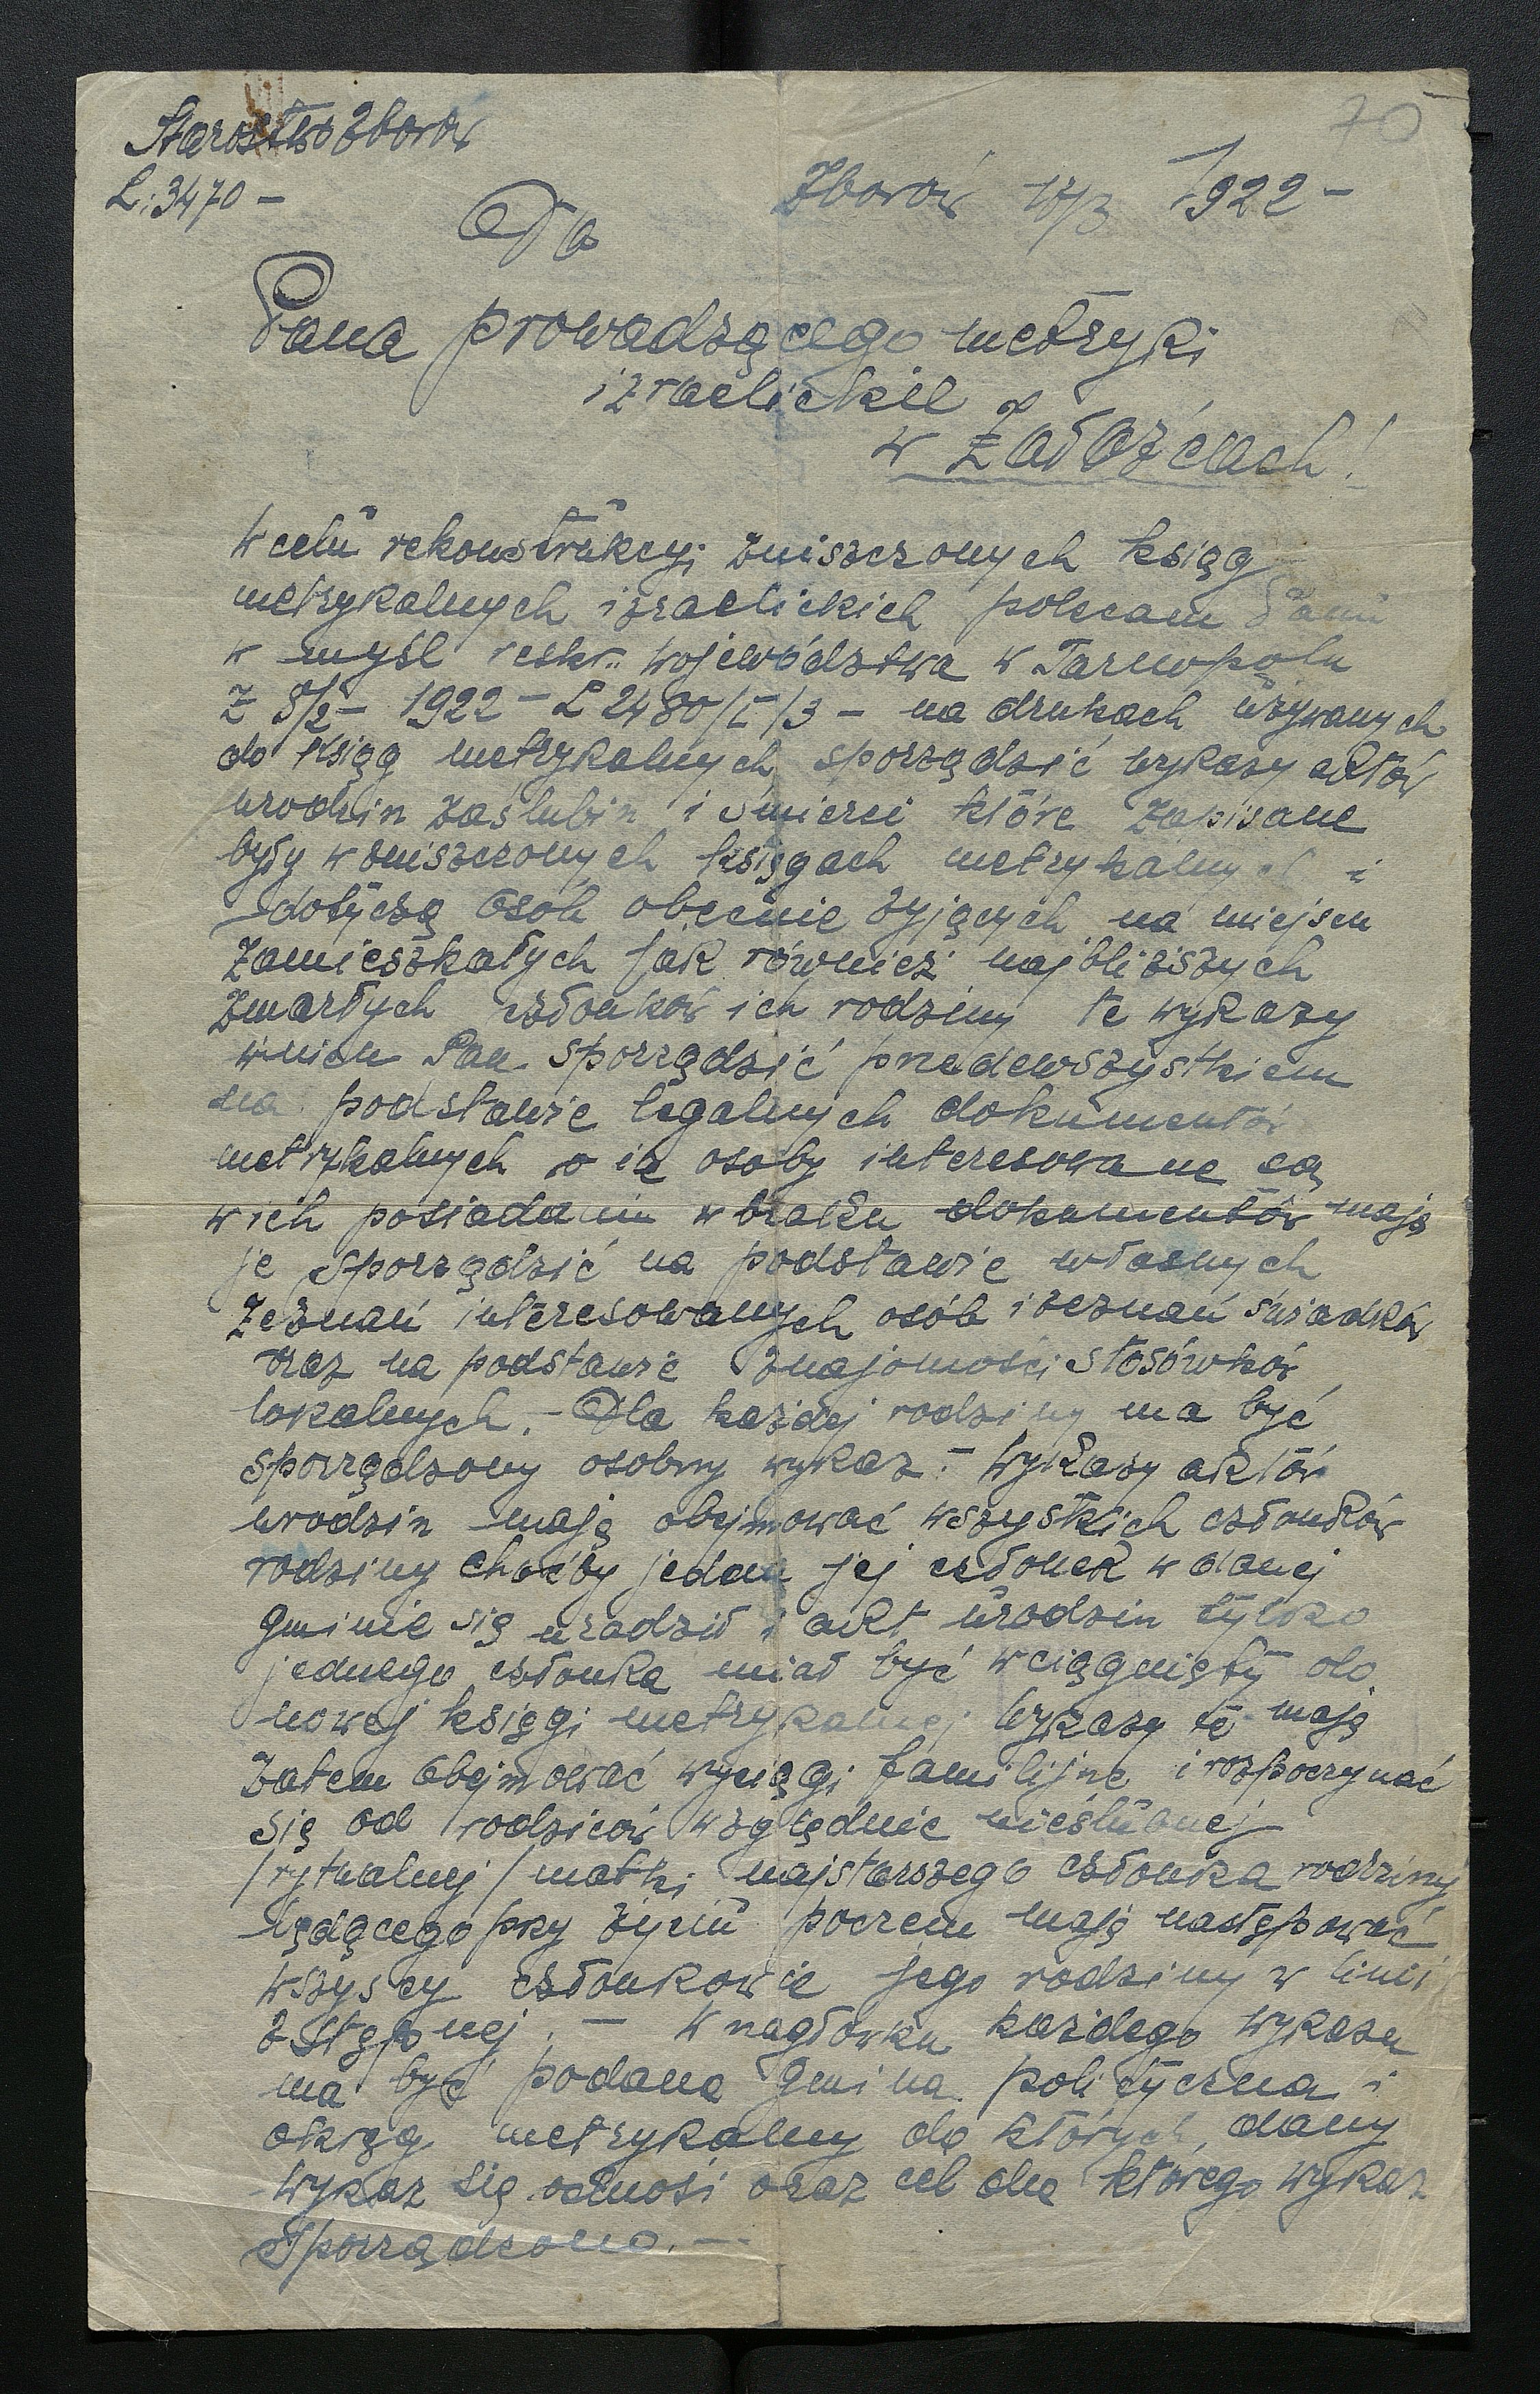 70
Starostwo Zborów
L: 3470 –
Zborów 18/3 1922 –
Do
Pana prowadzącego metryki
izraelickie
w Załoźcach!
W celu rekonstrukcyi zniszczonych ksiąg
metrykalnych izraelickich polecam Panu
w myśl reskr. Województwa w Tarnopolu
z 8/2 – 1922 – L 2480/I/3 – na drukach używanych
do ksiąg metrykalnych sporządzić wykazy aktów
urodzin zaślubin i śmierci które zapisane
były w zniszczonych księgach metrykalnych i
dotyczą osób obecnie żyjących na miejscu
zamieszkałych jak również najbliższych
zmarłych członków ich rodziny te wykazy
winien Pan sporządzić przedewszystkiem
na podstawie legalnych dokumentów
metrykalnych o ile osoby interesowane są
w ich posiadaniu w braku dokumentów mają
je sporządzić na podstawie własnych
zeznań interesowanych osób i zeznań świadków
oraz na podstawie znajomości stosówków
lokalnych. – Dla każdej rodziny ma być
sporządzony osobny wykaz. – Wykazy aktów
urodzin mają obejmować wszystkich członków
rodziny choćby jeden jej członek w danej
gminie się uradził i akt urodzin tylko
jednego członka miał być wciągnięty do
nowej księgi metrykalnej Wykazy te mają
zatem obejmować wyciągi familijne i rozpoczynać
się od rodziców względnie nieślubnej
/rytualnej/ matki najstarszego członka rodziny
będącego przy życiu poczem mają następować
wszyscy członkowie jego rodziny w linii
zstępnej. – W nagłówku każdego wykazu
ma być podana gmina polityczna i
okręg metrykalny do których dany
wykaz się odnosi oraz cel dla którego wykaz
sporządzono. –